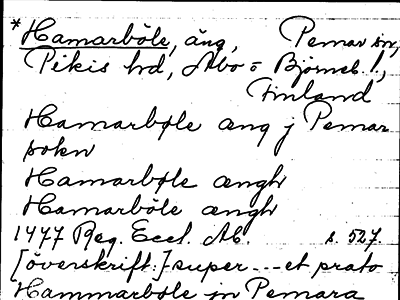 *Hamarböle, äng, Pemar sn,
Pikis hd, Åbo o Björneb. l.,
Finland
Hamarbøle æng j Pemar
sokn
Hamarbøle ængh
Hamarböle ængh
1477 Reg. Eccl. Ab. s. 527.
[överskrift:] super --- et prato
Hammarbole in Pemara